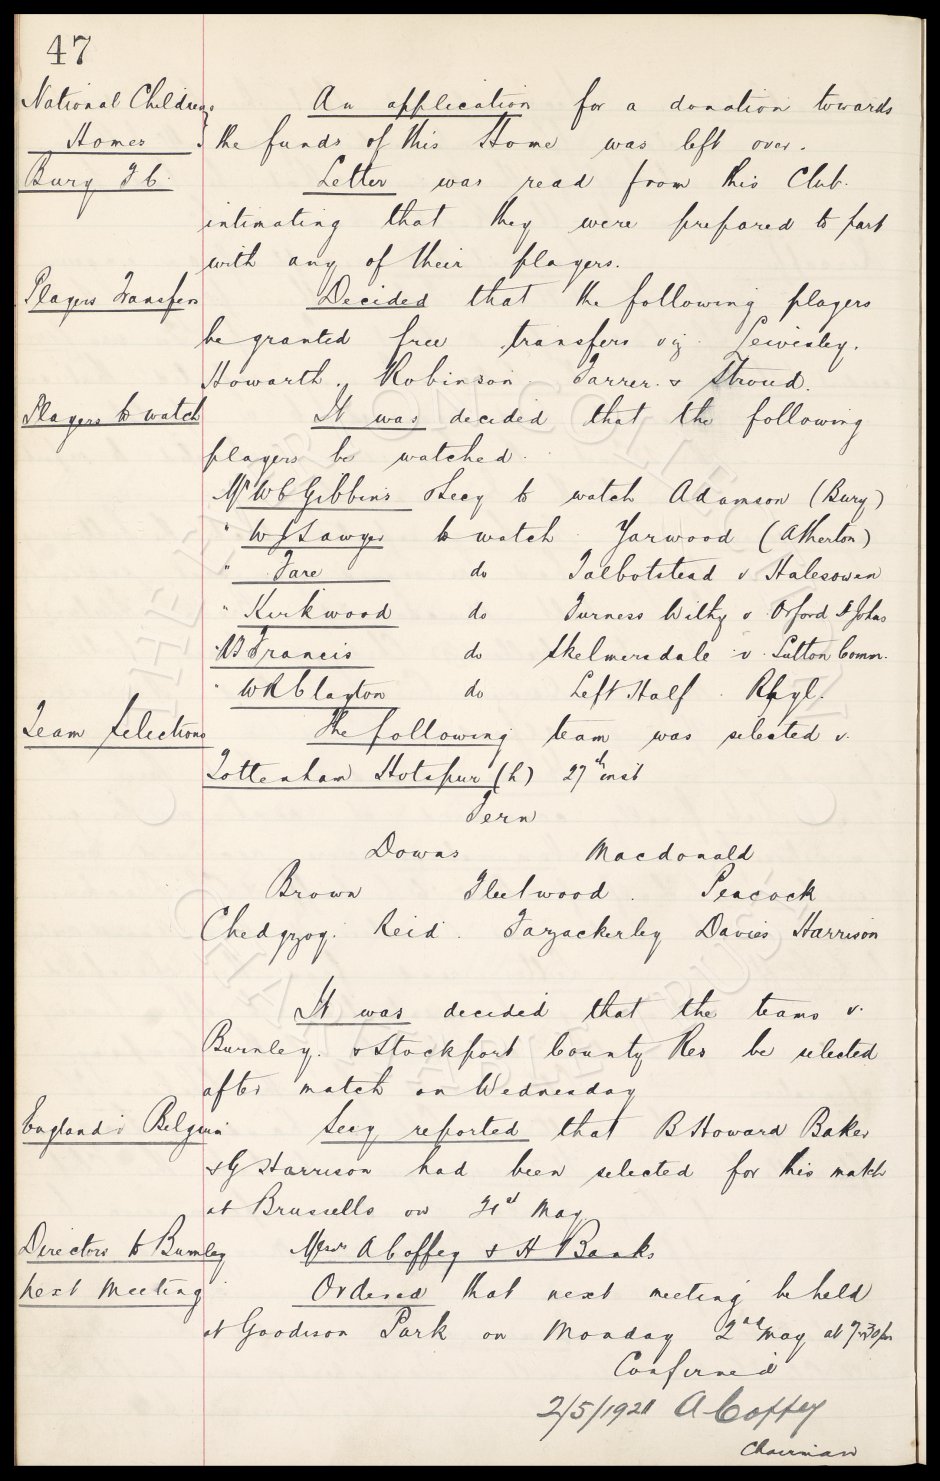 47
National Childrens An application for a donation towards
Homes the funds of this Home was left over.
Bury F.C. Letter was read from this Club.
intimating that they were prepared to part
with any of their players.
Players Transfers Decided that the following players
be granted free transfers viz.
Howarth, Robinson. Farrer. & Stroud.
Players to watch It was decided that the following
players be watched.
Mr W C Gibbins & Secy to watch Adamson (Bury)
" W J Sawyer to watch Yarwood (Atherton)
" Fare do Talbotstead v Halesowen
" Kirkwood do Furness Withy v Orford St Johns
" B Francis do Skelmersdale v. Sutton Comm.
" W R Clayton do Left Half. Rhyl.
Team Selections The following team was selected v.
Tottenham Hotspur (h) 27th inst
Fern
Downs Macdonald
Brown Fleetwood. Peacock
Chedgzoy. Reid. Fazackerley Davies Harrison
It was decided that the teams v.
Burnley. & Stockport County Res be selected
after match on Wednesday
England v Belgium Secy reported that B Howard Baker
& G Harrison had been selected for this match
at Brussells on 21st May
Directors to Burnley Messrs A Coffey & H Banks
Next Meeting Ordered that next meeting be held
at Goodison Park on Monday 2nd May at 7-30pm
Confirmed
2/5/1921 A Coffey
Chairman
THE EVERTON COLLECTION
CHARITABLE TRUST